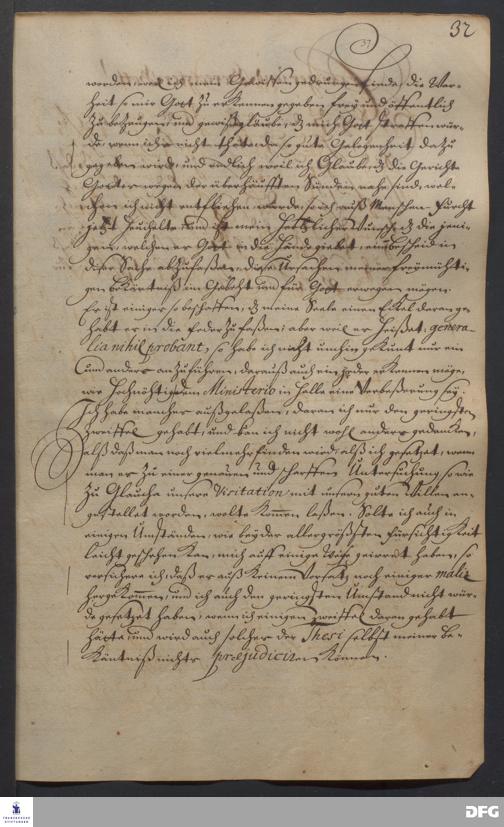 32
werden, weil ich mein Gewissen gedrungen finde, die War-
heit so mir Gott zu erkennen gegeben frey und öffentlich
zu bezeugen, und gewiß glaube, dz mich Gott straffen wür-
de, wenn ichs nicht thäte, da so gute Gelegenheit dazu
gegeben wird, und endlich weil ich glaube, dz die Gerichte
Gottes wegen der überhäufften Sünden nahe sind, wel-
chen ich nicht entfliehen würde, so ich auß Menschen-furcht
jetzt heuchelte, und ist mein hertzlicher Wunsch, dz die jeni-
gen, welchen er Gott in die Hände giebet, ein bescheid in
dieser Sache abzufaßen, diese Ursachen meiner freymühti-
gen bekäntniß im Gebeht und für Gott erwegen mögen.
Es ist einiger so beschaffen, dz meine Seele einen Eckel daran ge-
habt es in die Feder zu faßen; aber weil es heißet, genera-
lia nihil probant, so habe ich nicht umhin gekunt nur ein
und anders anzuführen, darauß auch ein jeder erkennen möge,
wie hochnöhtig dem Ministerio in Halle eine Verbeßerung sey.
Ich habe manches außgelaßen, daran ich nur den geringsten
Zweiffel gehabt, und kan ich nicht wohl anders gedencken,
alß daß man noch vielmehr finden wird, alß ich gesetzet, wenn
man es zu einer genauen und scharffen Untersuchung, so wie
zu Glaucha unsere Visitation mit unserm guten Willen an-
gestellet worden, wolte kommen laßen. Solte ich auch in
einigen Umständen, wie bey der allergrößesten Fürsichtigkeit
leicht geschehen kan, mich auff einige Weise geirret haben, so
versichere ich, daß es auß keinem Vorsatz noch einiger malice
hergekommen, und ich auch den geringsten Umstand nicht wür-
de gesetzet haben, wenn ich einigen Zweiffel daran gehabt
hätte, und wird auch solches der Thesi selbst meiner Be-
käntniß nichts præjudiciren können.
FRANCKESCHE STIFTUNGEN
DFG